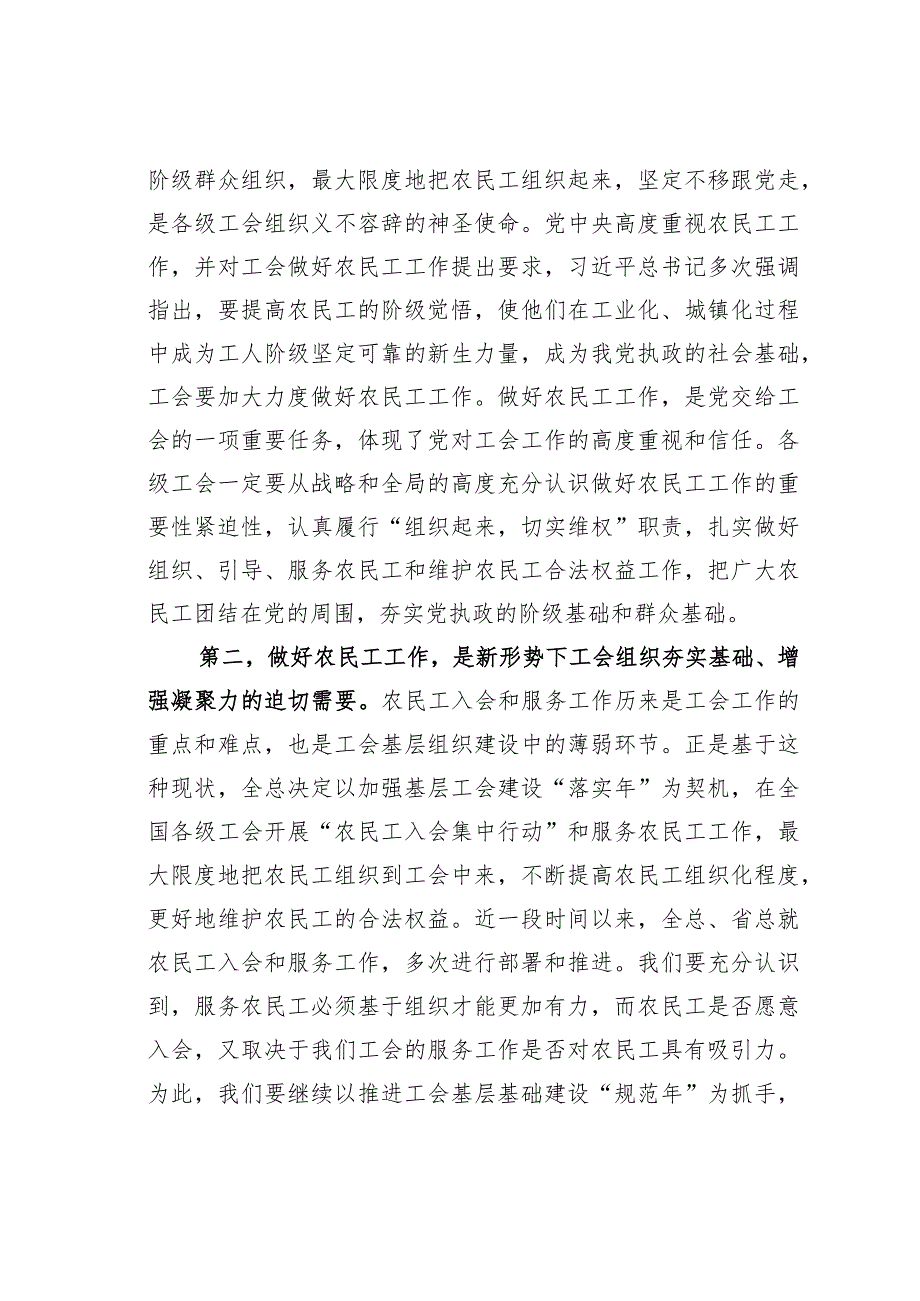 阶级群众组织，最大限度地把农民工组织起来，坚定不移跟党走，
是各级工会组织义不容辞的神圣使命。党中央高度重视农民工工
作，并对工会做好农民工工作提出要求，习近平总书记多次强调
指出，要提高农民工的阶级觉悟，使他们在工业化、城镇化过程
中成为工人阶级坚定可靠的新生力量，成为我党执政的社会基础，
工会要加大力度做好农民工工作。做好农民工工作，是党交给工
会的一项重要任务，体现了党对工会工作的高度重视和信任。各
级工会一定要从战略和全局的高度充分认识做好农民工工作的重
要性紧迫性，认真履行“组织起来，切实维权”职责，扎实做好
组织、引导、服务农民工和维护农民工合法权益工作，把广大农
民工团结在党的周围，夯实党执政的阶级基础和群众基础。
第二，做好农民工工作，是新形势下工会组织夯实基础、增
强凝聚力的迫切需要。农民工入会和服务工作历来是工会工作的
重点和难点，也是工会基层组织建设中的薄弱环节。正是基于这
种现状，全总决定以加强基层工会建设“落实年”为契机，在全
国各级工会开展“农民工入会集中行动”和服务农民工工作，最
大限度地把农民工组织到工会中来，不断提高农民工组织化程度，
更好地维护农民工的合法权益。近一段时间以来，全总、省总就
农民工入会和服务工作，多次进行部署和推进。我们要充分认识
到，服务农民工必须基于组织才能更加有力，而农民工是否愿意
入会，又取决于我们工会的服务工作是否对农民工具有吸引力。
为此，我们要继续以推进工会基层基础建设“规范年”为抓手，